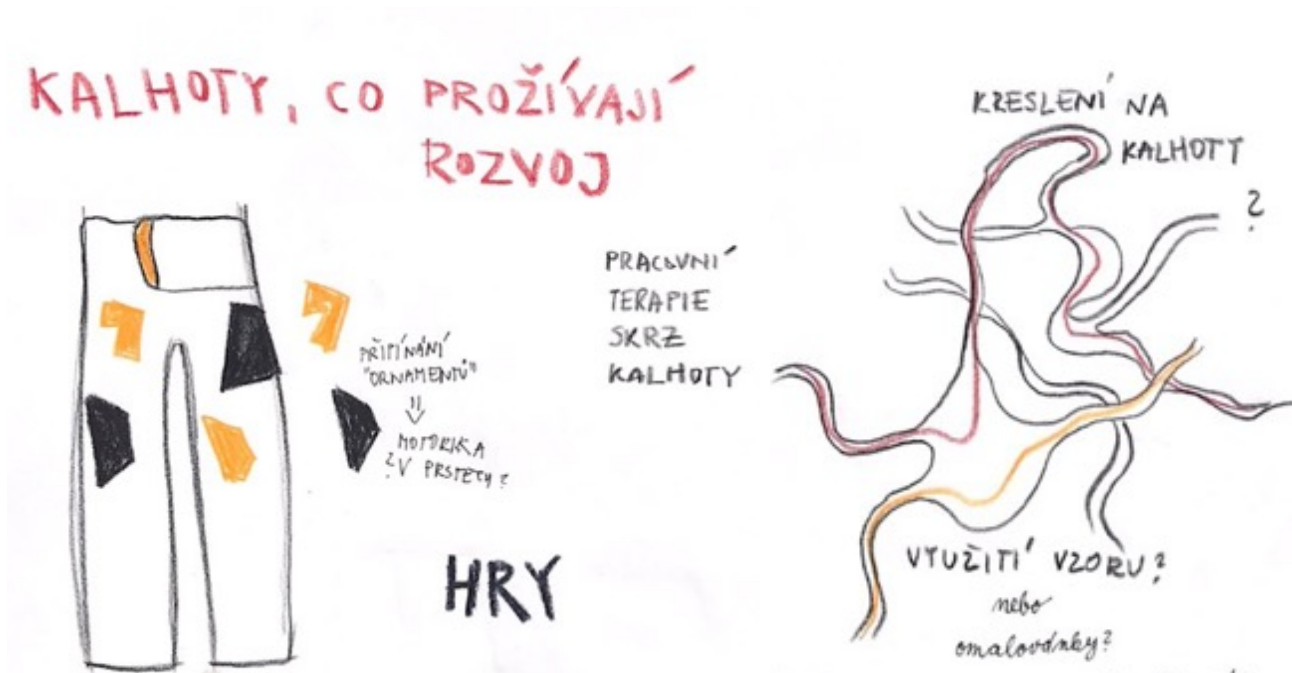 KALHOTY, CO PROŽÍVAJÍ
ROZVOJ
PŘIPÍNÁNÍ
"ORNAMENTŮ"
⇓
MOTORIKA
? V PRSTECH?
PRACOVNÍ
TERAPIE
SKRZ
KALHOTY
HRY
KRESLENÍ NA
KALHOTY
?
VYUŽITÍ VZORU?
nebo
omalovánky?